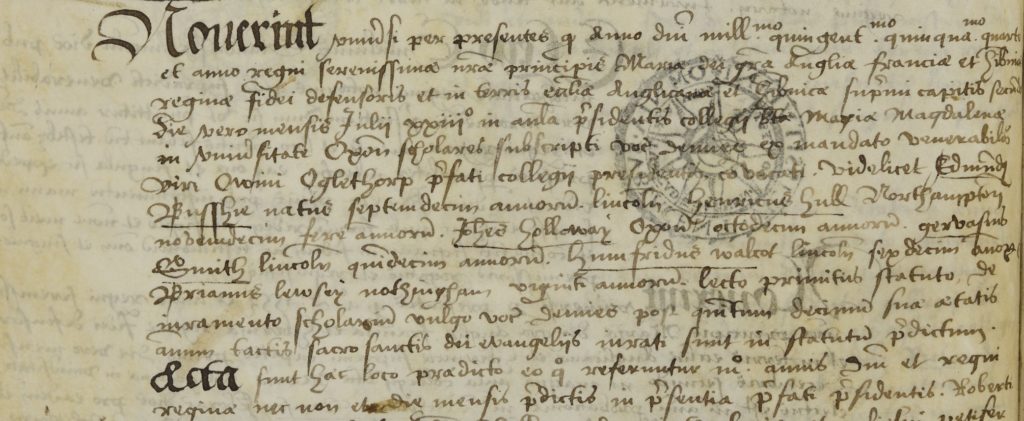 Noverint univᵉrsi per presentes q Anno dm̄ mill.ᵐᵒ quingent.ᵐᵒ quinqua.ᵐᵒ quarto
et anno regni serenissimæ nrãe principis Mariæ dei gr̃a Angliæ franciæ et Hib̄niæ
reginæ fidei defensoris et in terris eccliæ Anglicanæ et Hib̄nicæ sup̄mi capitis secūdo
die vero mensis Julii xxiiiiº in aula p̄sidentis collegij b̄tæ Mariæ Magdalenæ
in univᵉrsitate Oxon̄ scholares subscripti voc̄ demies ex mandato venerabilis
viri Owini Oglethorp p̄fati collegij presidentis covocati. videlicet Edmūdꝰ
Russhe natus septemdecim annorū. lincoln̄ Henricus Hull Northampton
novemdecim fere annorū. Jhes holloway Oxon̄ octodecim annorū. gervasius
Smith lincoln̄ quīdecim annorū. Humfridus walcot lincoln̄ sexdecim anoꝝ
Brianus lewsey notingham viginti annorū. lecto primitus statuto, de
iuramento scholariū vulgo voc̄ demies post quītum decimū suæ ætatis
annū tactis sacrosanctis dei evangelijs iurati sunt in statutum p̄dictum.
Acta sunt hæc loco prædicto eo q̄ referuntur mº. annis Dm̄ et regni
reginæ nec non et die mensis p̄dictis in p̄sentia p̄fati p̄sidentis. Roberti